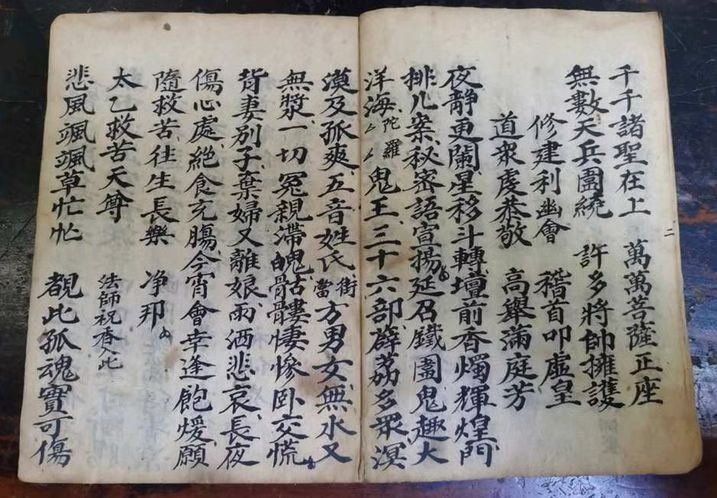 千千諸聖在上 萬萬菩薩正座
無數天兵圍繞 許多將帥擁護
修建利幽會 稽首叩虛皇
道衆虔恭敬 高舉滿庭芳
夜靜更闌星移斗轉壇前香燭輝煌門
排几案秘密語宣揚延召鐵圍鬼趣大
洋海陀羅鬼王三十六部薜荔多眾溟
漠及孤爽五音姓氏街當方男女無水又
無漿一切冤親滯魄骷髏悽慘卧交慌
背妻別子棄婦又離娘雨洒悲哀長夜
傷心處絕食充腸今宵會幸逢飽煖願
隨救苦往生長樂 净邦
太乙救苦天尊 法師祝香入此
悲風颯颯草忙忙 覩此孤魂實可傷